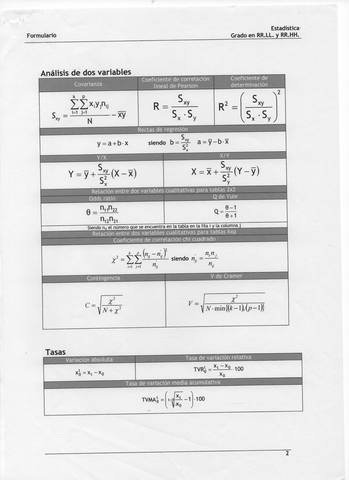 Estadística
Formulario Grado en RR.LL. y RR.HH.
Análisis de dos variables
Covarianza
Coeficiente de correlación lineal de Pearson
Coeficiente de determinación
S_xy = (Σ_{i=1}^{k} Σ_{j=1}^{p} x_i y_j n_ij) / N − x̄ȳ
R = S_xy / (S_x · S_y)
R² = (S_xy / (S_x · S_y))²
Rectas de regresión
y = a + b · x siendo b = S_xy / S_x² a = ȳ − b · x̄
Y/X X/Y
Y = ȳ + S_xy / S_x² (X − x̄)
X = x̄ + S_xy / S_y² (Y − ȳ)
Relación entre dos variables cualitativas para tablas 2x2
Odds ratio Q de Yule
θ = n₁₁n₂₂ / n₁₂n₂₁
Q = (θ − 1) / (θ + 1)
Siendo n_ij el número que se encuentra en la tabla en la fila i y la columna j
Relación entre dos variables cualitativas para tablas kxp
Coeficiente de correlación chi cuadrado
siendo
Contingencia V de Cramer
C = √(χ² / (N + χ²))
V = √(χ² / (N · min{(k − 1),(p − 1)}))
Tasas
Variación absoluta Tasa de variación relativa
Tasa de variación media acumulativa
2